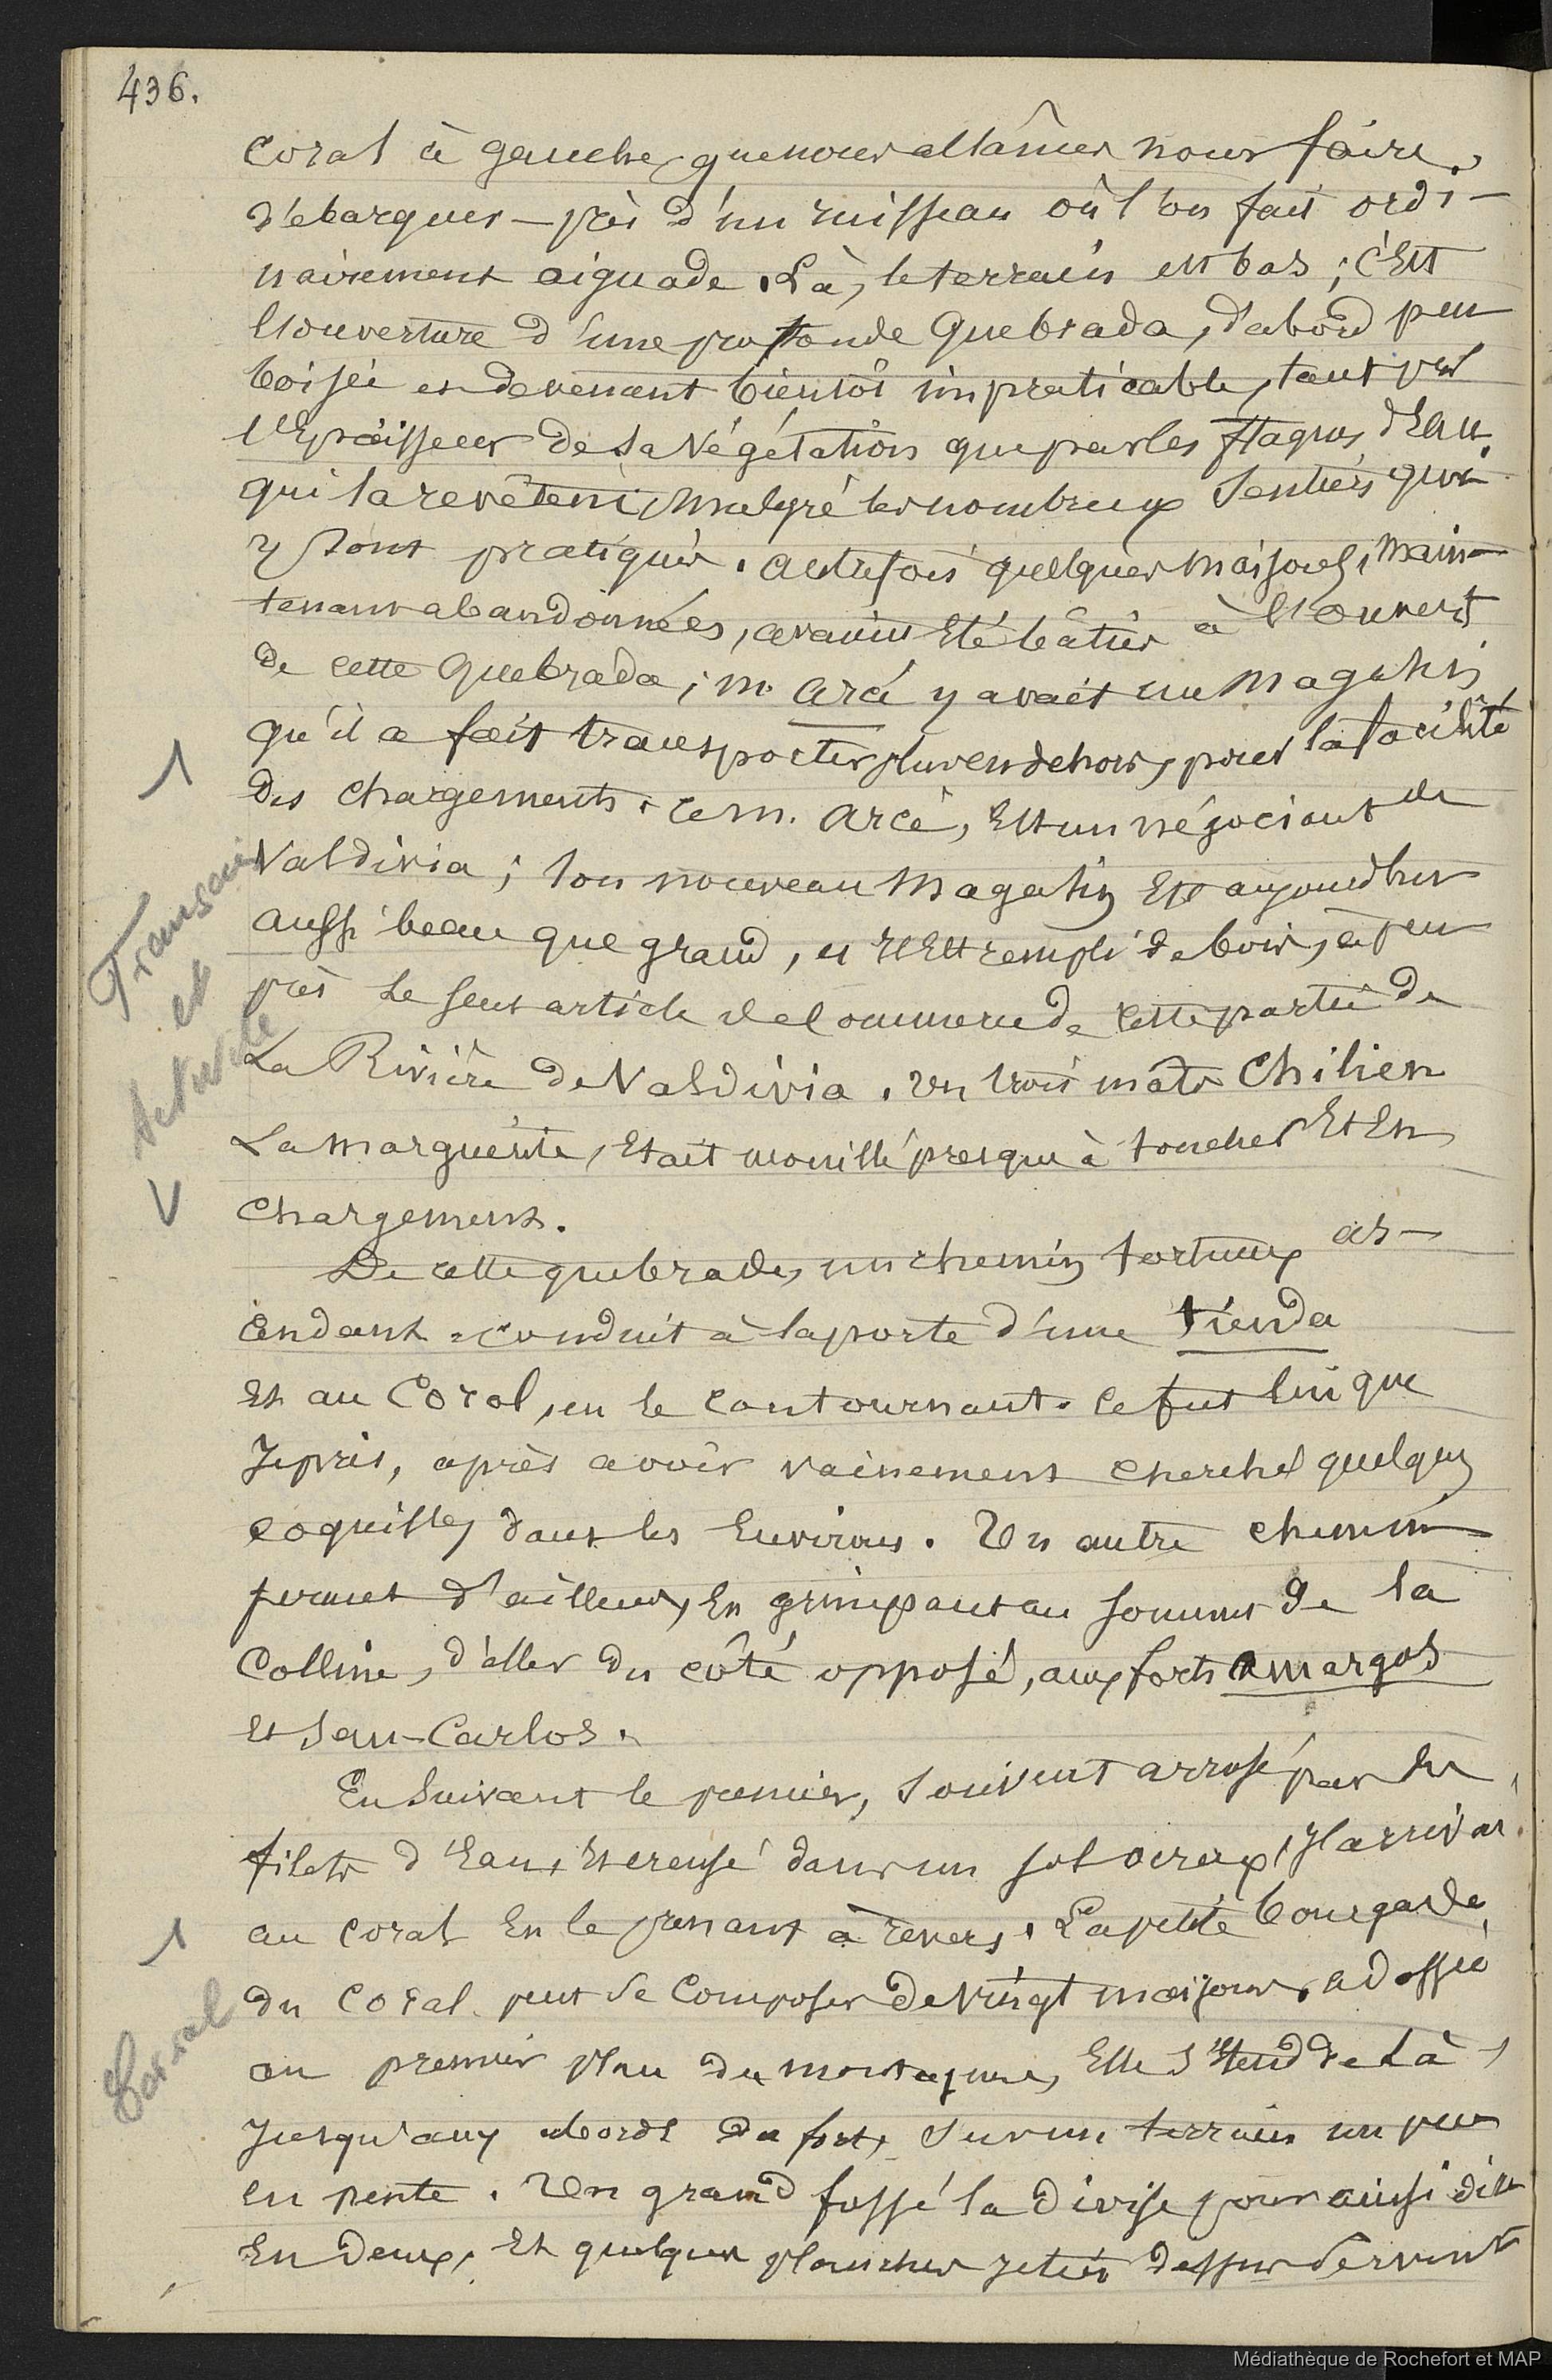 436.
Coral à gauche, que nous allâmes nous faire
débarquer — près d'un ruisseau où l'on fait ordi-
nairement aiguade. Là, le terrain est bas ; c'Est
l'ouverture d'une profonde Quebrada, d'abord peu
boisée et devenant bientôt impraticable, tant par
l'Epaisseur de la Végétation que par les flaques d'Eau
qui la revêtent, malgré les nombreux Sentiers qui
y sont pratiqués. autrefois quelques maisons, main-
tenant abandonnées, avaient Eté bâties à l'ouvert
de cette Quebrada ; m. Arcé y avait un magasin
qu'il a fait transporter plus en dehors, pour la facilité
des Chargements. Ce m. Arcé, Est un négociant de
Valdivia ; son nouveau magasin Est aujourd'hui
aussi beau que grand, et Il Est rempli de bois, à peu
près le seul article de Commerce de cette partie de
La Rivière de Valdivia. Un trois mâts Chilien
La Marguerite, Etait mouillé presqu'à toucher Et En
Chargement.
De cette quebrada, un chemin tortueux as-
cendant conduit à la porte d'une tienda
Et au Coral, en le contournant. Ce fut lui que
Je pris, après avoir vainement cherché quelques
coquilles dans les Environs. Un autre chemin
permet d'ailleurs, En grimpant au sommet de la
Colline, d'aller du côté opposé, aux forts Amargos
Et San-Carlos.
En Suivant le premier, souvent arrosé par des
filets d'Eau, Et creusé dans un sol ocreux, J'arrivai
au Coral En le prenant à revers. La petite bourgade
du Coral peut se Composer de Vingt maisons. adossée
au premier plan de montagnes, Elle s'Etend de Là
Jusqu'aux abords du fort, sur un terrain un peu
en pente. Un grand fossé la divise pour ainsi dire
En deux, Et quelques planches jetées dessus servent
1
Français
et
Activité
V
1
Corral
Médiathèque de Rochefort et MAP